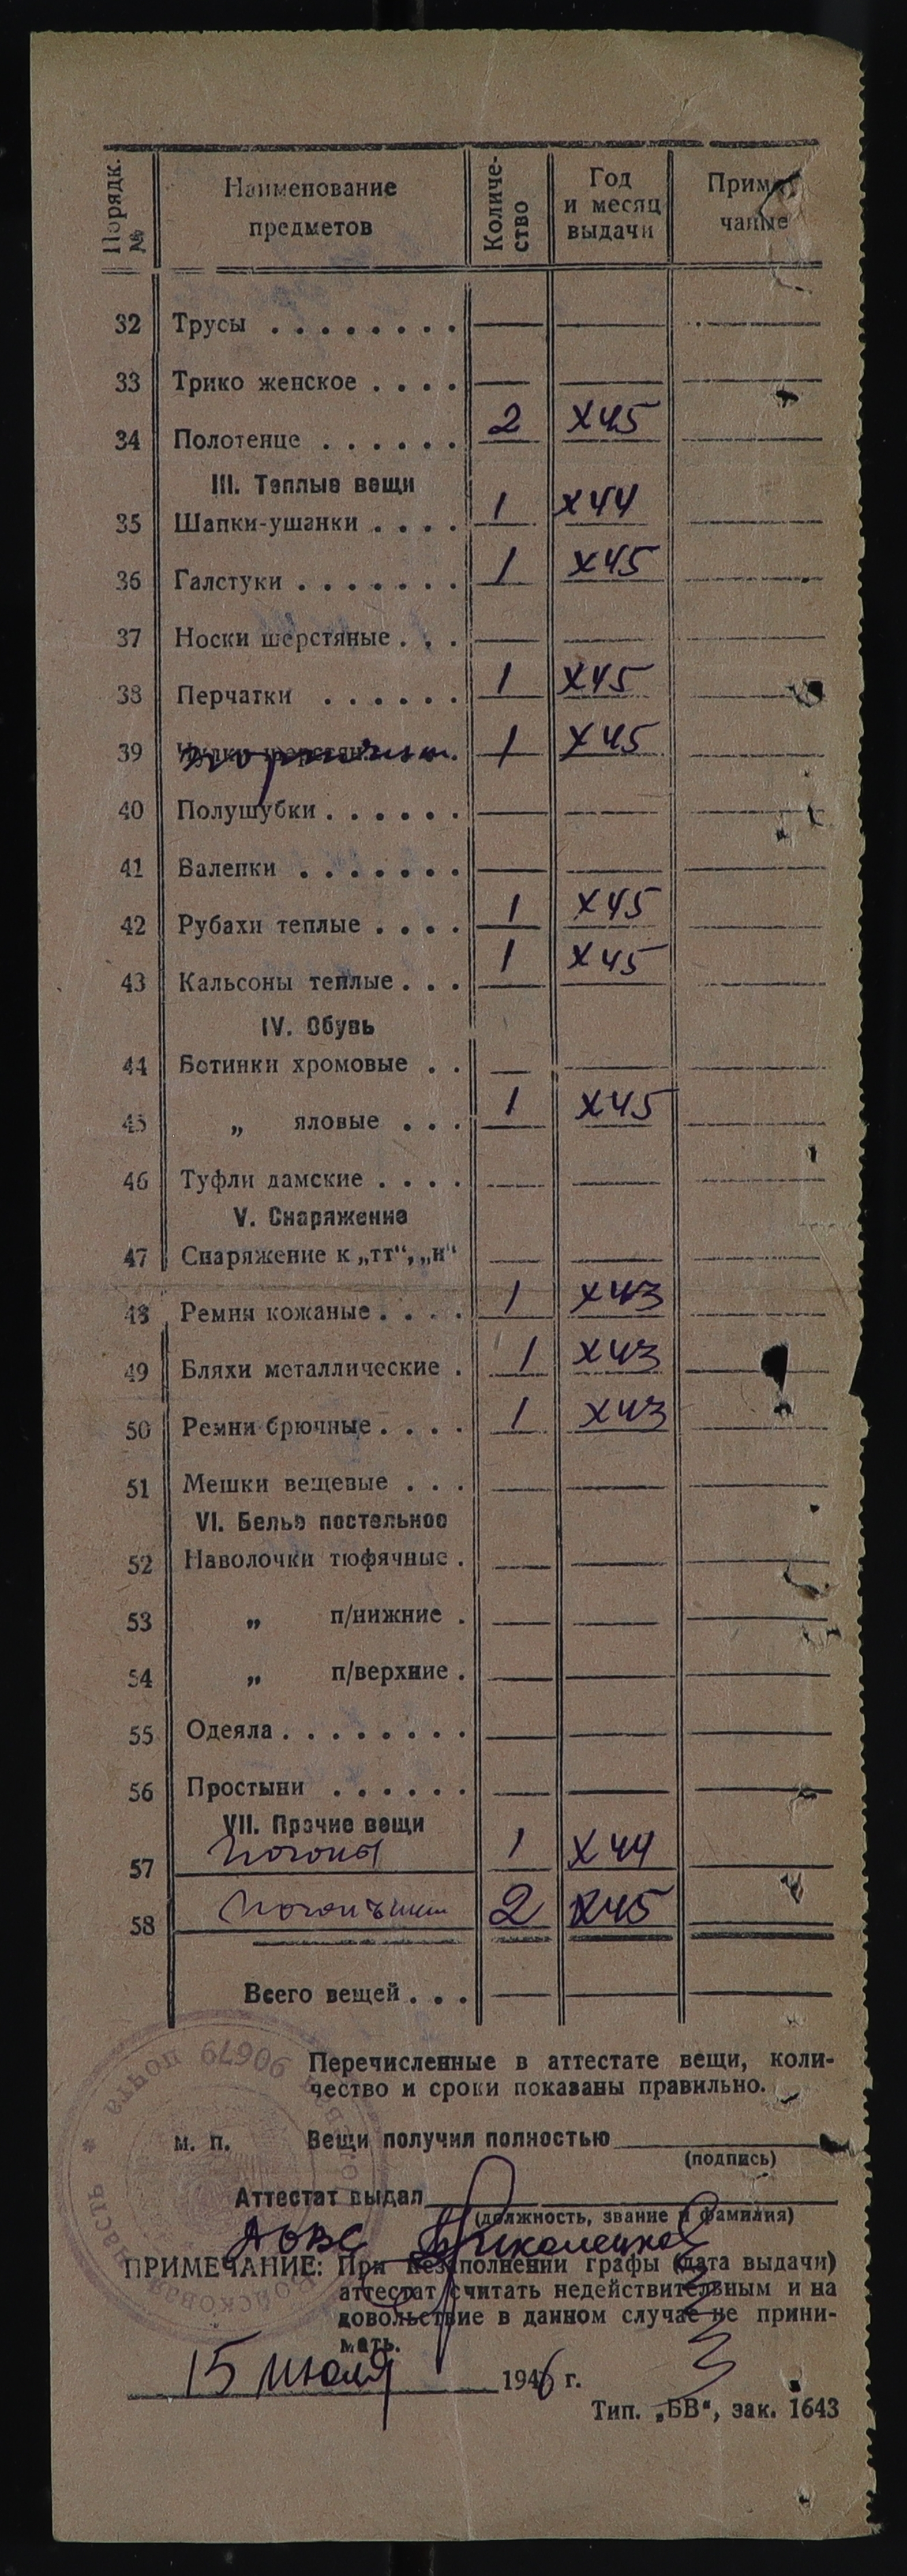 Порядк. №
Наименование предметов
Количество
Год и месяц выдачи
Примечание
32 Трусы . . . . . . . . — — —
33 Трико женское . . . . — — —
34 Полотенце . . . . . . 2 X 45 —
III. Теплые вещи
35 Шапки-ушанки . . . . 1 X 44 —
36 Галстуки . . . . . . . 1 X 45 —
37 Носки шерстяные . . . — — —
38 Перчатки . . . . . . 1 X 45 —
39 1 X 45 —
40 Полушубки . . . . . . — — —
41 Валенки . . . . . . . — — —
42 Рубахи теплые . . . . 1 X 45 —
43 Кальсоны теплые . . . 1 X 45 —
IV. Обувь
44 Ботинки хромовые . . — — —
45 „ яловые . . . 1 X 45 —
46 Туфли дамские . . . . — — —
V. Снаряжение
47 Снаряжение к „тт“, „н“ — — —
48 Ремни кожаные . . . . 1 X 43 —
49 Бляхи металлические . 1 X 43 —
50 Ремни брючные . . . . 1 X 43 —
51 Мешки вещевые . . . — — —
VI. Белье постельное
52 Наволочки тюфячные . — — —
53 „ п/нижние . — — —
54 „ п/верхние . — — —
55 Одеяла . . . . . . . . — — —
56 Простыни . . . . . . — — —
VII. Прочие вещи
57 Погоны 1 X 44 —
58 2 X 45 —
Всего вещей . . . — — —
Перечисленные в аттестате вещи, коли-
чество и сроки показаны правильно.
м. п. Вещи получил полностью
(подпись)
Аттестат выдал
(должность, звание и фамилия)
ПРИМЕЧАНИЕ: При незаполнении графы (дата выдачи)
аттестат считать недействительным и на
довольствие в данном случае не прини-
мать.
15 июля 1946 г.
Тип. „БВ“, зак. 1643
Войсковая часть * почта 90679